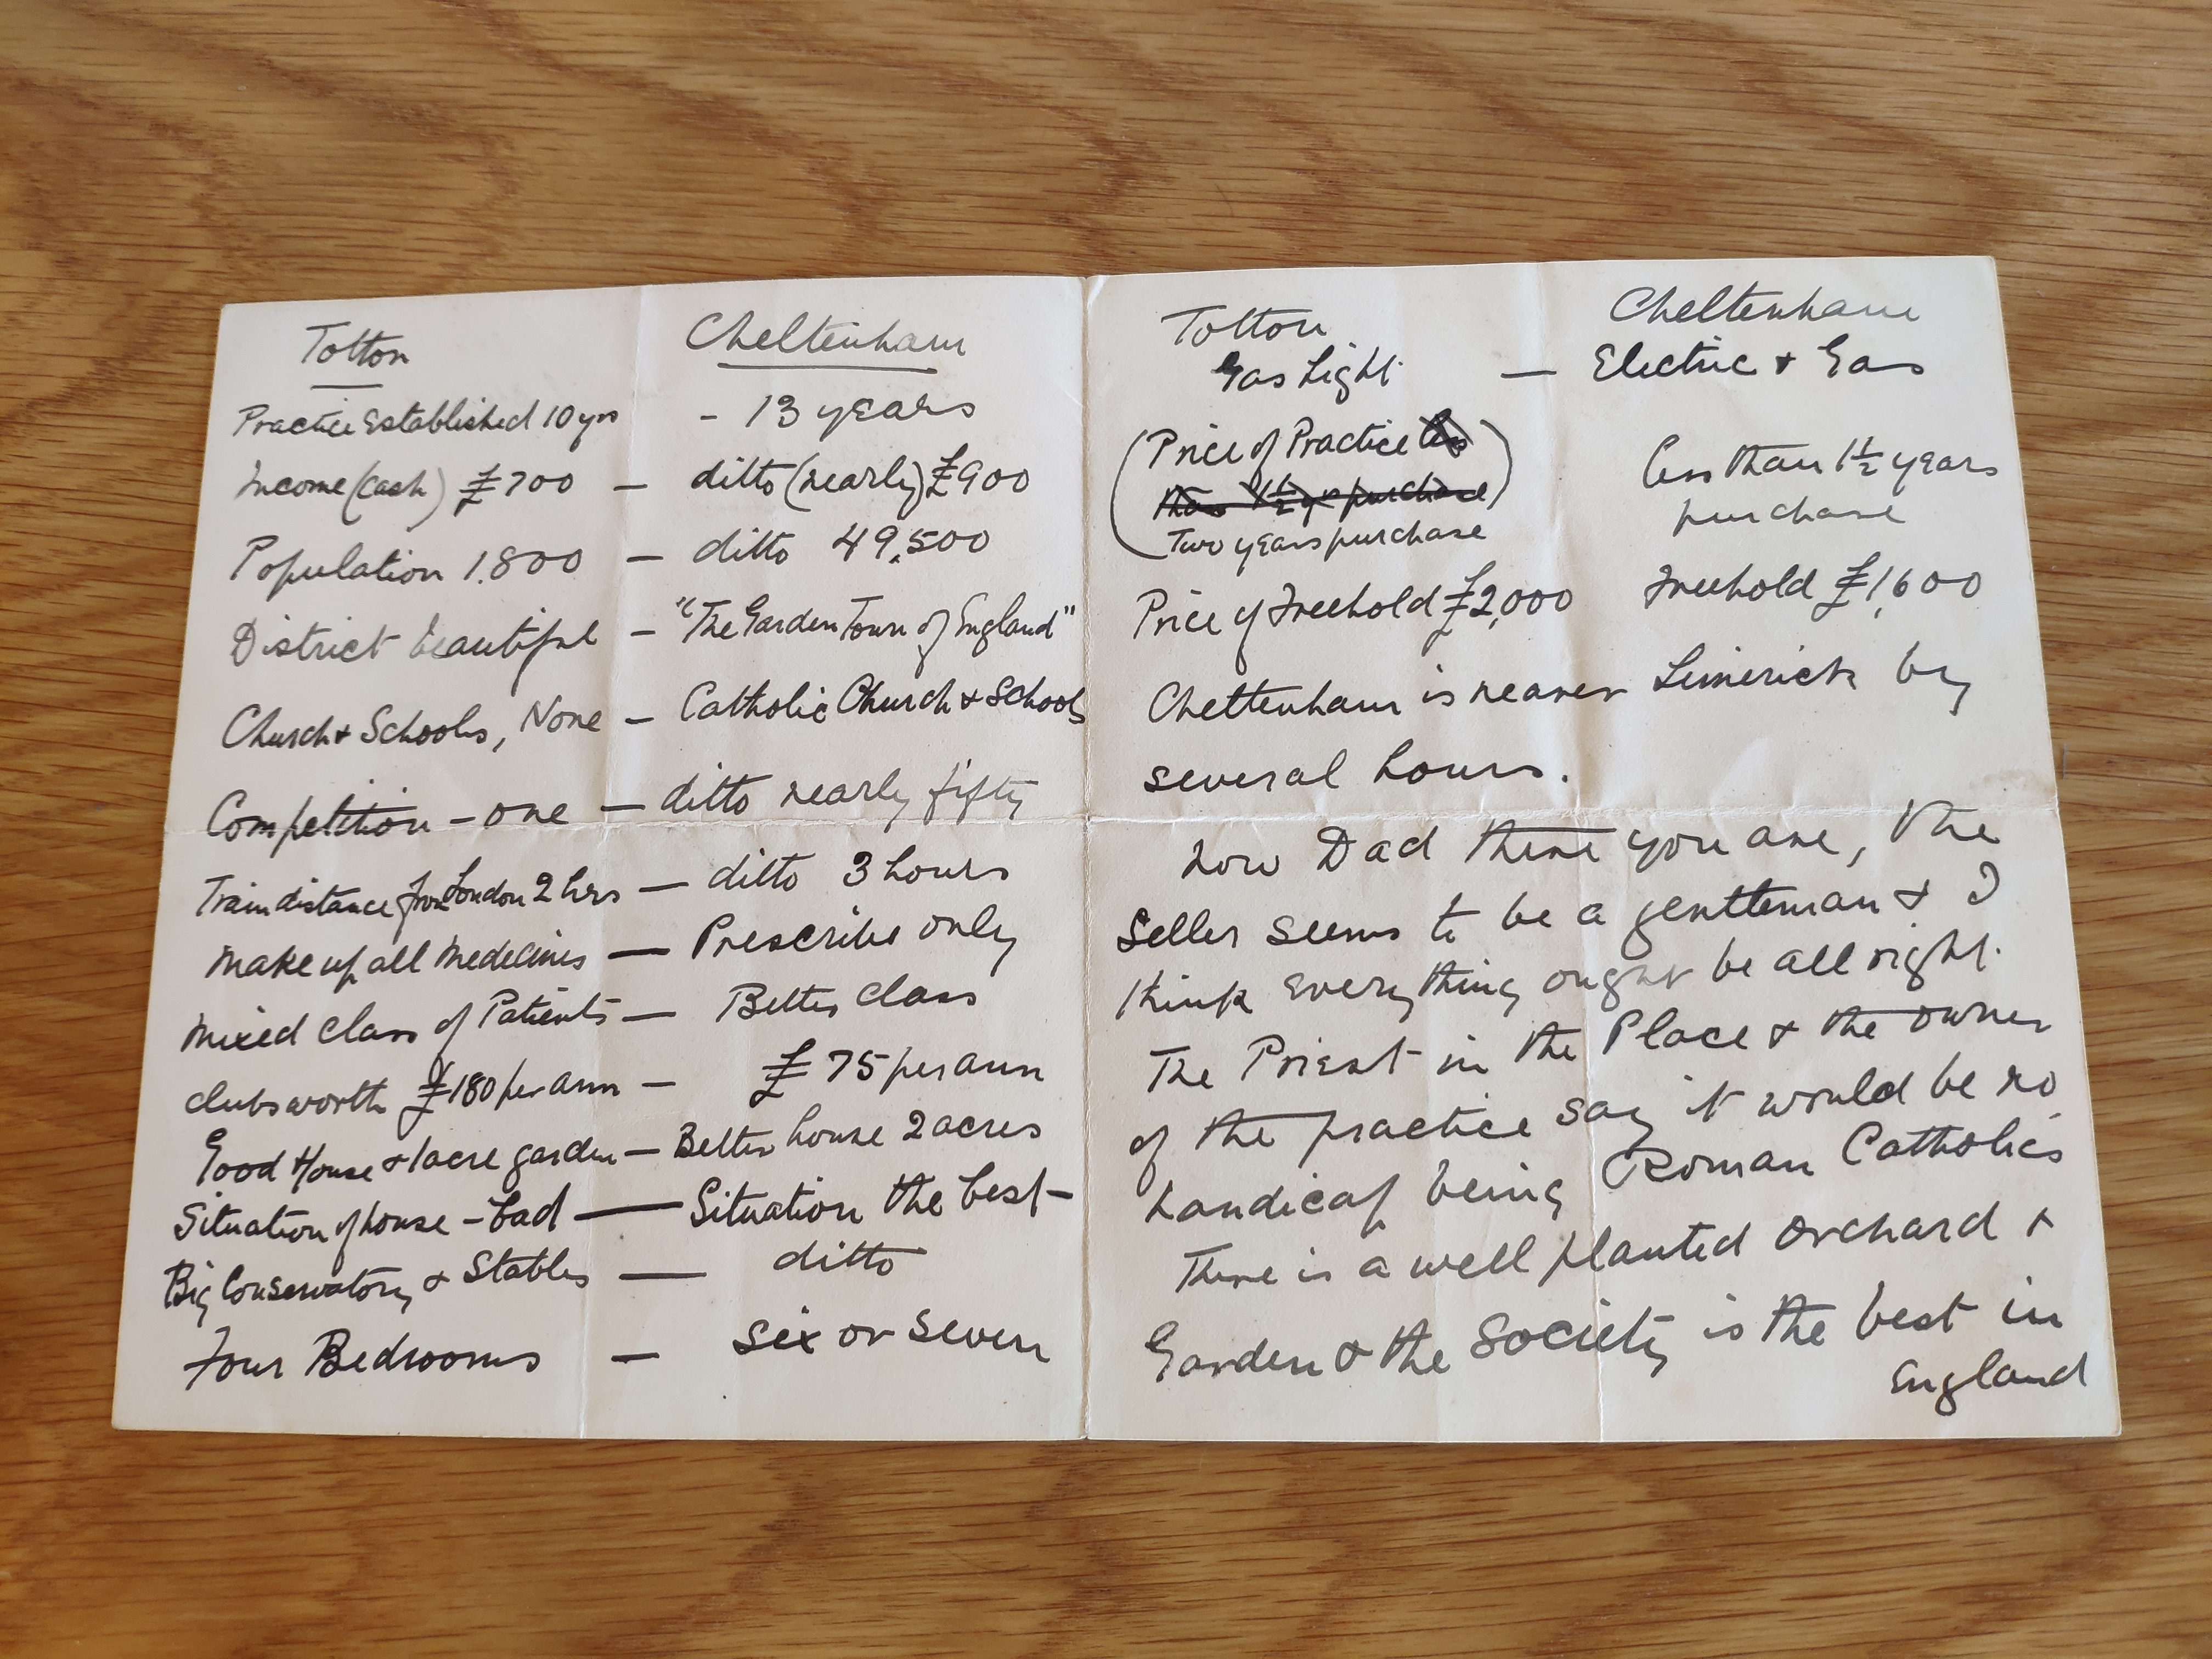 Totton Cheltenham
Practice Established 10 yrs - 13 years
Income (cash) £700 — ditto (nearly) £900
Population 1,800 — ditto 49,500
District beautiful — "The Garden Town of England"
Church & Schools, None — Catholic Church & Schools
Competition - one — ditto nearly fifty
Train distance from London 2 hrs — ditto 3 hours
Make up all Medecines — Prescribe only
Mixed Class of Patients — Better class
Clubs worth £180 per ann — £75 per ann
Good House & 1 acre garden — Better house 2 acres
Situation of house - bad — Situation the best -
Big Conservatory & Stables — ditto
Four Bedrooms — six or seven
Totton Cheltenham
Gas Light — Electric & Gas
(Price of Practice less
than 1½ yr purchase)
Two years purchase
less than 1½ years
purchase
Price of Freehold £2,000 Freehold £1,600
Cheltenham is nearer Limerick by
several hours.
Now Dad there you are, the
Seller seems to be a gentleman & I
think everything ought be all right.
The Priest in the Place & the owner
of the practice say it would be no
handicap being Roman Catholics
There is a well planted orchard &
Garden & the Society is the best in
England